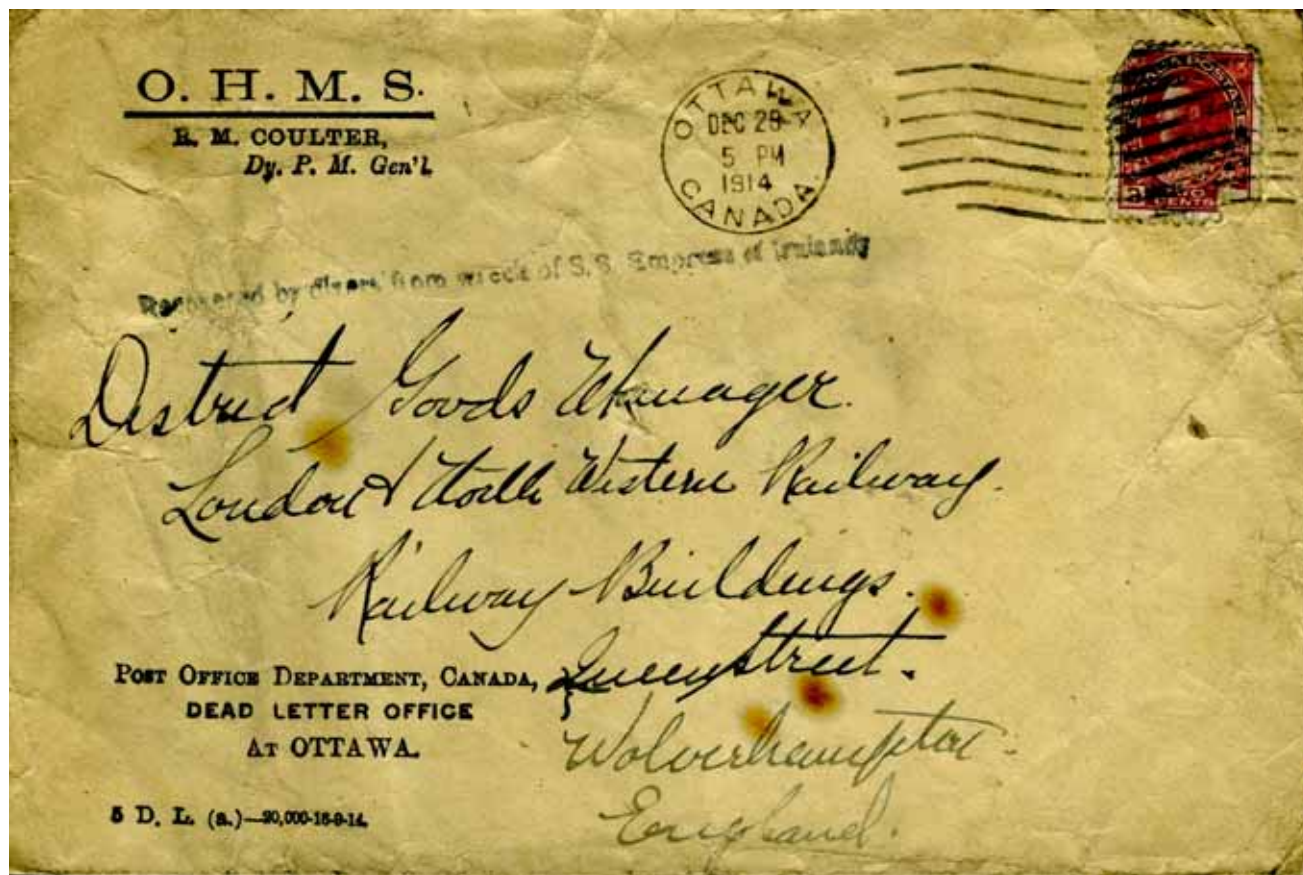 O. H. M. S.
R. M. COULTER,
Dy. P. M. Gen'l.
OTTAWA
DEC 28
5 PM
1914
CANADA.
CANADA POSTAGE
2 TWO
CENTS
Recovered by divers from wreck of S. S. Empress of Ireland
District Goods Manager.
London & North Western Railway.
Railway Buildings.
Queen street.
Wolverhampton.
England.
POST OFFICE DEPARTMENT, CANADA,
DEAD LETTER OFFICE
AT OTTAWA.
5 D. L. (a.)—20,000-16-9-14.